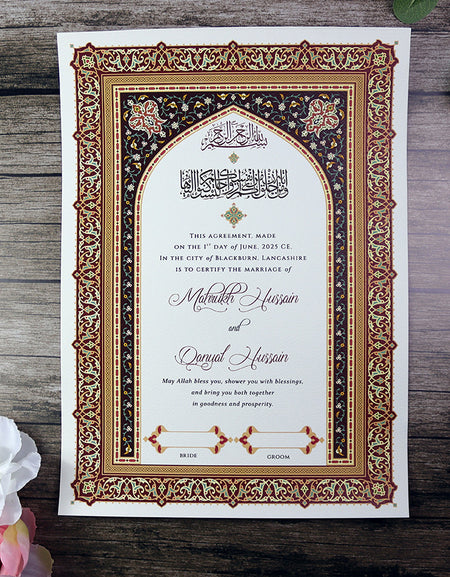 بسم الله الرحمن الرحيم
THIS AGREEMENT, MADE
ON THE 1ST DAY OF JUNE, 2025 CE.
IN THE CITY OF BLACKBURN, LANCASHIRE
IS TO CERTIFY THE MARRIAGE OF
Mahrukh Hussain
and
Danyal Hussain
May Allah bless you, shower you with blessings,
and bring you both together
in goodness and prosperity.
BRIDE GROOM